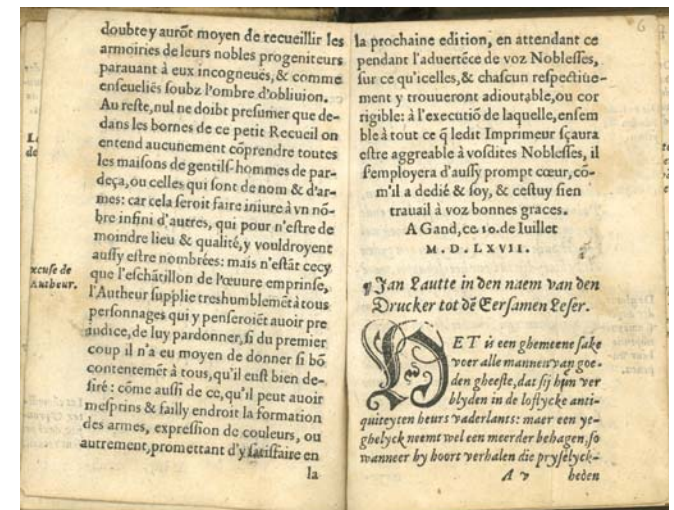 doubtey aurõt moyen de recueillir les
armoiries de leurs nobles progeniteurs
parauant à eux incogneuës, & comme
enseuelies soubz l'ombre d'obliuion.
Au reste, nul ne doibt presumer que de-
dans les bornes de ce petit Recueil on
entend aucunement cõprendre toutes
les maisons de gentils-hommes de par-
deça, ou celles qui sont de nom & d'ar-
mes: car cela seroit faire iniure à vn nõ-
bre infini d'autres, qui pour n'estre de
moindre lieu & qualité, y vouldroyent
aussy estre nombrées: mais n'estãt cecy
xcuse de
Autheur.
que l'eschãtillon de l'œuure emprinse,
l'Autheur supplie treshumblemẽt à tous
personnages qui y penseroiẽt auoir pre
iudice, de luy pardonner, si du premier
coup il n'a eu moyen de donner si bõ
contentemẽt à tous, qu'il eust bien de-
siré: cõme aussi de ce, qu'il peut auoir
mesprins & failly endroit la formation
des armes, expression de couleurs, ou
autrement, promettant d'y satisfaire en
la
6
la prochaine edition, en attendant ce
pendant l'aduertẽce de voz Noblesses,
sur ce qu'icelles, & chascun respectiue-
ment y trouueront adioutable, ou cor
rigible: à l'executiõ de laquelle, ensem
ble à tout ce q̃ ledit Imprimeur sçaura
estre aggreable à vosdites Noblesses, il
s'employera d'aussy prompt cœur, cõ-
m'il a dedié & soy, & cestuy sien
trauail à voz bonnes graces.
A Gand, ce 10. de Iuillet
M. D. LXVII.
¶ Jan Lautte in den naem van den
Drucker tot dẽ Eersamen Leser.
HET is een ghemeene sake
voer alle mannen van goe-
den gheeste, dat sij hun ver
blyden in de loflycke anti-
quiteyten heurs vaderlants: maer een ye-
ghelyck neemt wel een meerder behagen, so
wanneer hy hoort verhalen die pryselyck-
A v heden